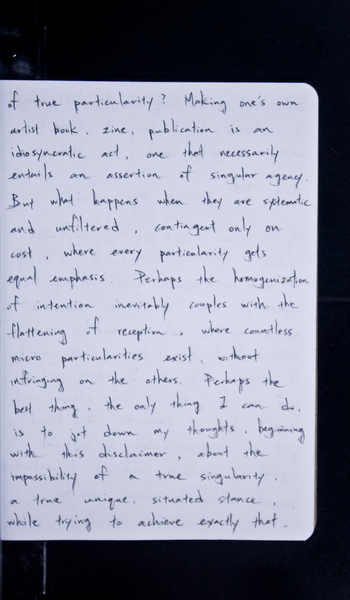 of true particularity? Making one's own
artist book, zine, publication is an
idiosyncratic act, one that necessarily
entails an assertion of singular agency.
But what happens when they are systematic
and unfiltered, contingent only on
cost, where every particularity gets
equal emphasis. Perhaps the homogenization
of intention inevitably couples with the
flattening of reception, where countless
micro particularities exist, without
infringing on the others. Perhaps the
best thing, the only thing I can do,
is to jot down my thoughts, beginning
with this disclaimer, about the
impossibility of a true singularity,
a true unique, situated stance,
while trying to achieve exactly that.